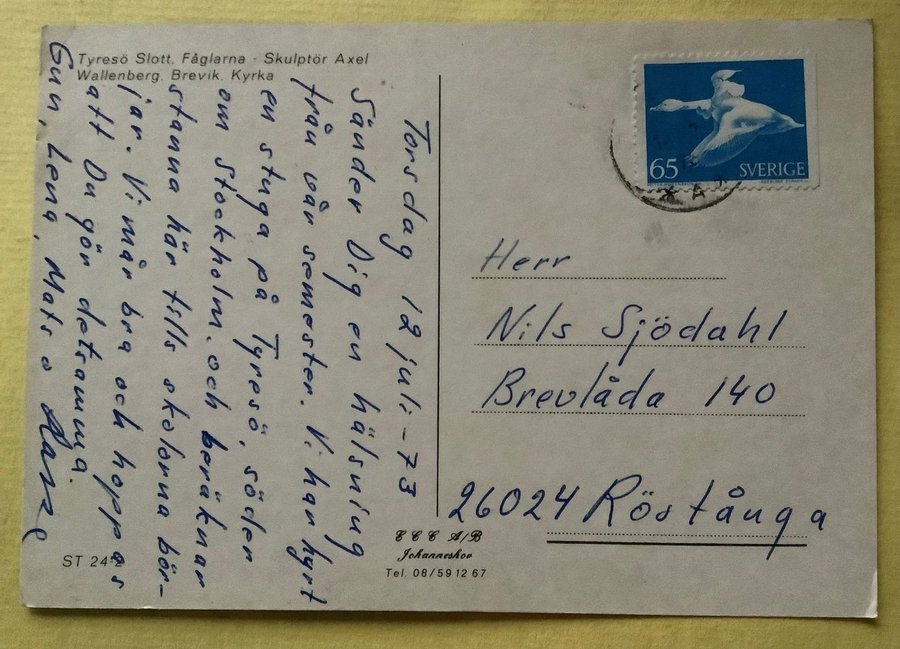 Tyresö Slott, Fåglarna - Skulptör Axel
Wallenberg, Brevik, Kyrka
Torsdag 12 juli - 73
Sänder Dig en hälsning
från vår semester. Vi har hyrt
en stuga på Tyresö, söder
om Stockholm, och beräknar
stanna här tills skolorna bör-
jar. Vi mår bra och hoppas
att Du gör detsamma.
Gun, Lena, Mats o
65 SVERIGE
Herr
Nils Sjödahl
Brevlåda 140
26024 Röstånga
CCC A/B
Johanneshov
Tel. 08/59 12 67
ST 242